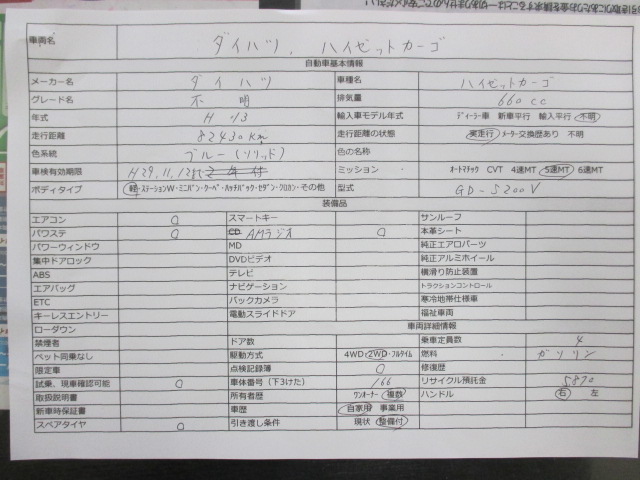 車両名 ダイハツ、ハイゼットカーゴ
自動車基本情報
メーカー名 ダイハツ 車種名 ハイゼットカーゴ
グレード名 不明 排気量 660cc
年式 H 13 輸入車モデル年式 ディーラー車 新車平行 輸入平行 不明
走行距離 82430km 走行距離の状態 実走行 メーター交換歴あり 不明
色系統 ブルー(ソリッド) 色の名称
車検有効期限 H29.11.12迄 2年付 ミッション オートマチック CVT 4速MT 5速MT 6速MT
ボディタイプ 軽・ステーションW・ミニバン・クーペ・ハッチバック・セダン・クロカン・その他 型式 GD-S200V
装備品
エアコン ○ スマートキー サンルーフ
パワステ ○ CD AMラジオ ○ 本革シート
パワーウィンドウ MD 純正エアロパーツ
集中ドアロック DVDビデオ 純正アルミホイール
ABS テレビ 横滑り防止装置
エアバッグ ナビゲーション トラクションコントロール
ETC バックカメラ 寒冷地帯仕様車
キーレスエントリー 電動スライドドア 福祉車両
ローダウン 車両詳細情報
禁煙者 ドア数 乗車定員数 4
ペット同乗なし 駆動方式 4WD・2WD・フルタイム 燃料 ガソリン
限定車 点検記録簿 ○ 修復歴
試乗、現車確認可能 ○ 車体番号(下3けた) 166 リサイクル預託金 5870
取扱説明書 所有者歴 ワンオーナー・複数 ハンドル 右 左
新車時保証書 車歴 自家用 事業用
スペアタイヤ ○ 引き渡し条件 現状 整備付